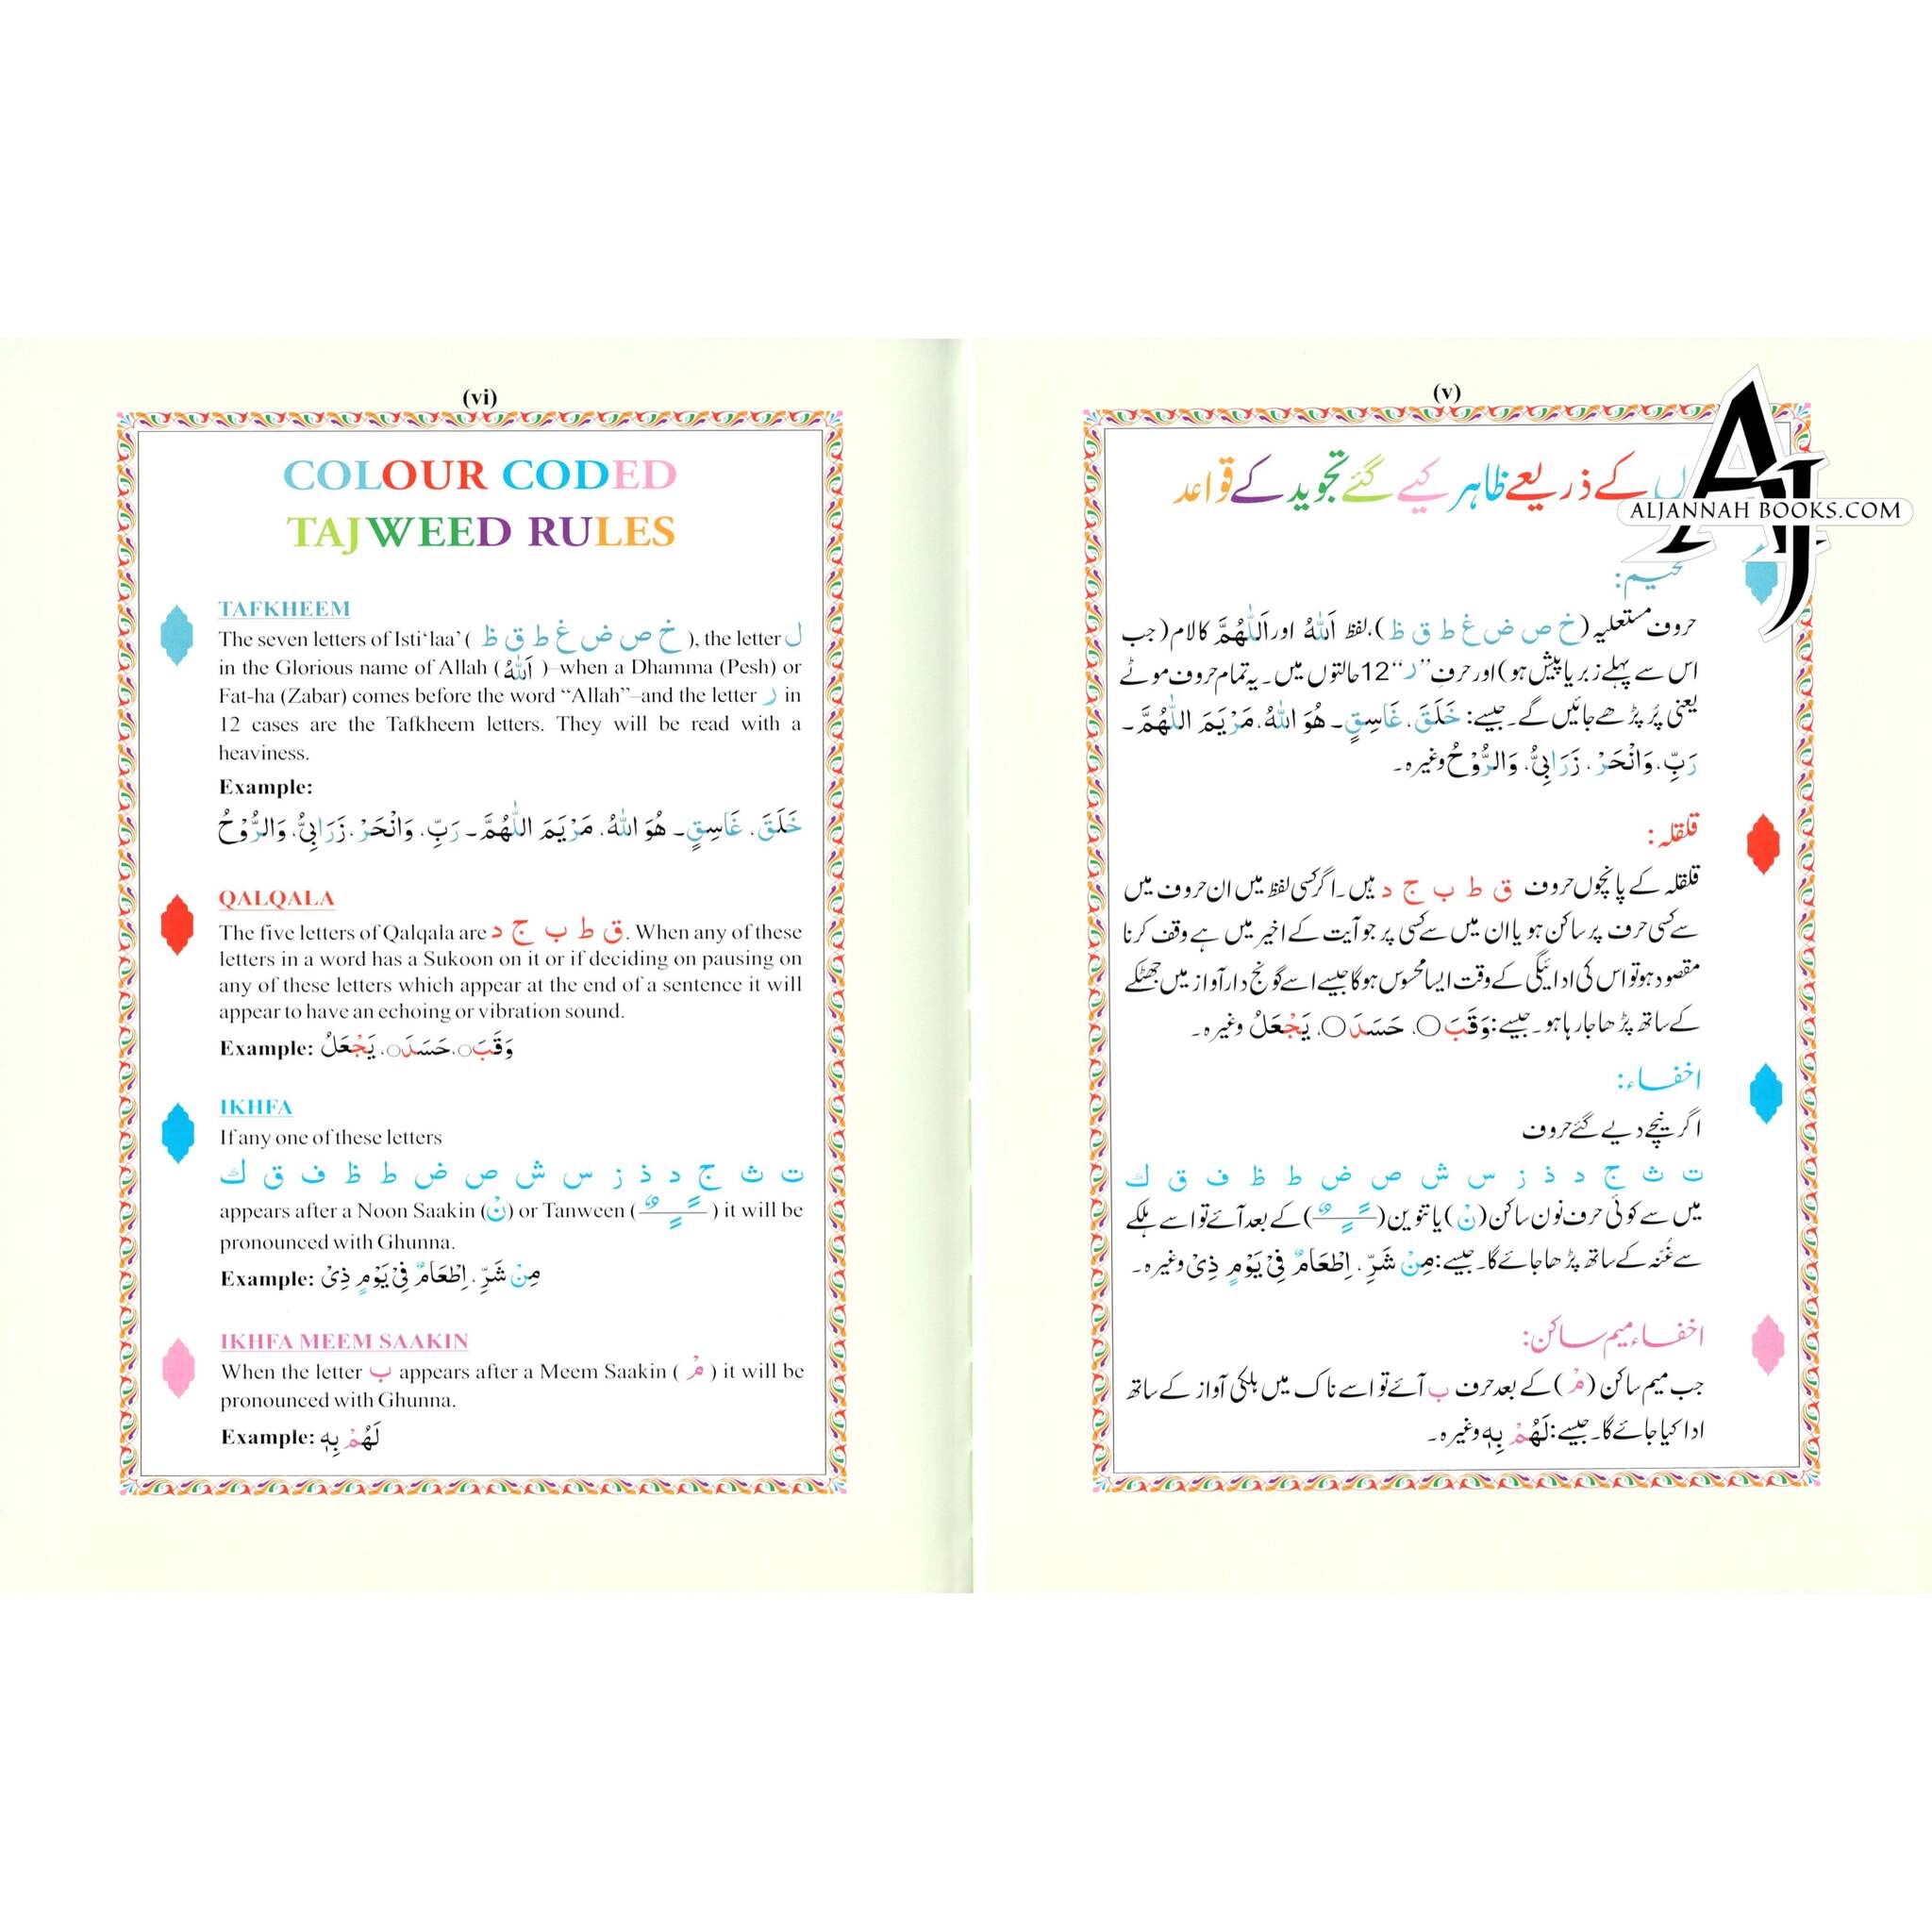 (vi)
COLOUR CODED
TAJWEED RULES
TAFKHEEM
The seven letters of Isti‘laa’ ( خ ص ض غ ط ق ظ ), the letter ل
in the Glorious name of Allah ( اَللّٰهُ )–when a Dhamma (Pesh) or
Fat-ha (Zabar) comes before the word “Allah”–and the letter ر in
12 cases are the Tafkheem letters. They will be read with a
heaviness.
Example:
خَلَقَ، غَاسِقٍ۔ هُوَ اللّٰهُ، مَرْيَمَ اللّٰهُمَّ۔ رَبِّ، وَانْحَرْ، زَرَابِيُّ، وَالرُّوْحُ
QALQALA
The five letters of Qalqala are ق ط ب ج د. When any of these
letters in a word has a Sukoon on it or if deciding on pausing on
any of these letters which appear at the end of a sentence it will
appear to have an echoing or vibration sound.
Example: وَقَبَ○، حَسَدَ○، يَجْعَلُ
IKHFA
If any one of these letters
ت ث ج د ذ ز س ش ص ض ط ظ ف ق ك
appears after a Noon Saakin (نْ) or Tanween ( ـًـٍـٌ ) it will be
pronounced with Ghunna.
Example: مِنْ شَرِّ، اِطْعَامٌ فِيْ يَوْمٍ ذِيْ
IKHFA MEEM SAAKIN
When the letter ب appears after a Meem Saakin ( مْ ) it will be
pronounced with Ghunna.
Example: لَهُمْ بِهٖ
(v)
کے ذریعے ظاہر کیے گئے تجوید کے قواعد
ALJANNAH BOOKS.COM
حروف مستعلیہ (خ ص ض غ ط ق ظ)، لفظ اَللّٰهُ اور اَللّٰهُمَّ کا لام (جب
اس سے پہلے زبر یا پیش ہو) اور حرفِ ”ر“ 12 حالتوں میں۔ یہ تمام حروف موٹے
یعنی پُر پڑھے جائیں گے۔ جیسے: خَلَقَ، غَاسِقٍ۔ هُوَ اللّٰهُ، مَرْيَمَ اللّٰهُمَّ۔
رَبِّ، وَانْحَرْ، زَرَابِيُّ، وَالرُّوْحُ وغیرہ۔
قلقلہ:
قلقلہ کے پانچوں حروف ق ط ب ج د ہیں۔ اگر کسی لفظ میں ان حروف میں
سے کسی حرف پر ساکن ہو یا ان میں سے کسی پر جو آیت کے اخیر میں ہے وقف کرنا
مقصود ہو تو اس کی ادائیگی کے وقت ایسا محسوس ہوگا جیسے اسے گونج دار آواز میں جھٹکے
کے ساتھ پڑھا جا رہا ہو۔ جیسے: وَقَبَ○، حَسَدَ○، يَجْعَلُ وغیرہ۔
اخفاء:
اگر نیچے دیے گئے حروف
ت ث ج د ذ ز س ش ص ض ط ظ ف ق ك
میں سے کوئی حرف نون ساکن (نْ) یا تنوین (ـًـٍـٌ) کے بعد آئے تو اسے ہلکے
سے غُنہ کے ساتھ پڑھا جائے گا۔ جیسے: مِنْ شَرِّ، اِطْعَامٌ فِيْ يَوْمٍ ذِيْ وغیرہ۔
اخفاء میم ساکن:
جب میم ساکن (مْ) کے بعد حرف ب آئے تو اسے ناک میں ہلکی آواز کے ساتھ
ادا کیا جائے گا۔ جیسے: لَهُمْ بِهٖ وغیرہ۔